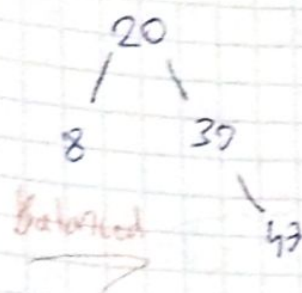 20
8 39
Balanced
43